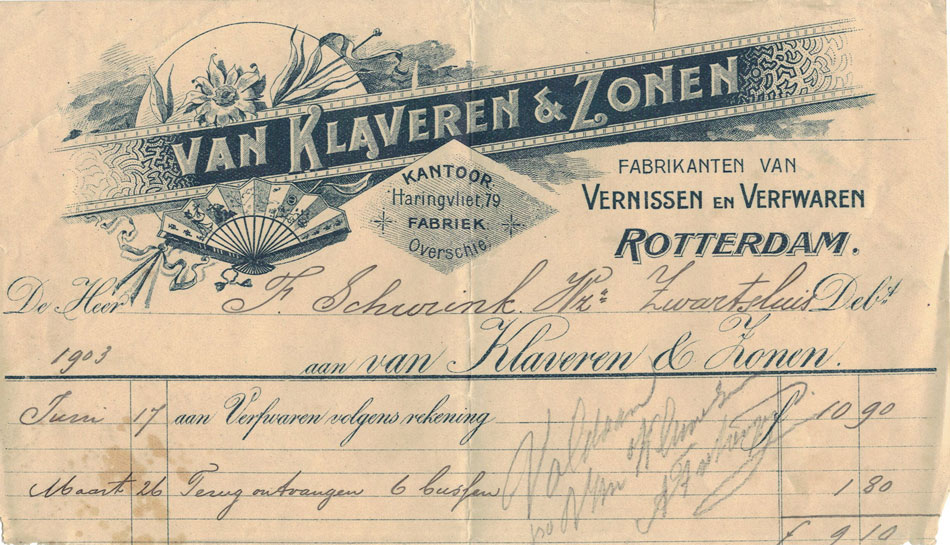 VAN KLAVEREN & ZONEN
KANTOOR.
Haringvliet, 79
FABRIEK.
Overschie
FABRIKANTEN VAN
VERNISSEN EN VERFWAREN
ROTTERDAM.
De Heer F. Schurink. Wz:n Zwartsluis Debt.
1903 aan van Klaveren & Zonen.
Juni 17 aan Verfwaren volgens rekening f 10 90
Maart 26 Terug ontvangen 6 bussen 1 80
f 9 10
Voldaan